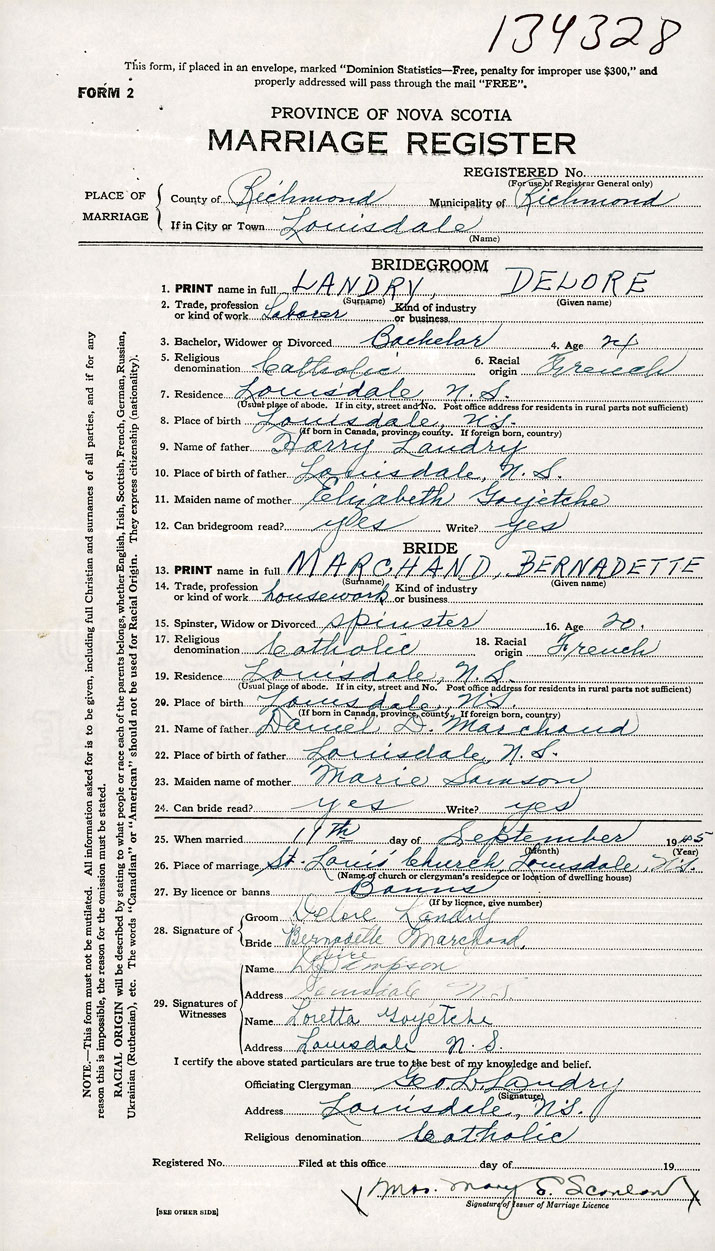 134328
This form, if placed in an envelope, marked "Dominion Statistics—Free, penalty for improper use $300," and
properly addressed will pass through the mail "FREE".
FORM 2
PROVINCE OF NOVA SCOTIA
MARRIAGE REGISTER
REGISTERED No.
(For use of Registrar General only)
PLACE OF MARRIAGE
County of Richmond Municipality of Richmond
If in City or Town Louisdale
(Name)
BRIDEGROOM
1. PRINT name in full LANDRY, DELORE
(Surname) (Given name)
2. Trade, profession or kind of work Laborer Kind of industry or business
3. Bachelor, Widower or Divorced Bachelor 4. Age 24
5. Religious denomination Catholic 6. Racial origin French
7. Residence Louisdale N.S.
(Usual place of abode. If in city, street and No. Post office address for residents in rural parts not sufficient)
8. Place of birth Louisdale, N.S.
(If born in Canada, province, county. If foreign born, country)
9. Name of father Harry Landry
10. Place of birth of father Louisdale, N.S.
11. Maiden name of mother Elizabeth Goyetche
12. Can bridegroom read? yes Write? yes
BRIDE
13. PRINT name in full MARCHAND, BERNADETTE
(Surname) (Given name)
14. Trade, profession or kind of work housework Kind of industry or business
15. Spinster, Widow or Divorced Spinster 16. Age 20.
17. Religious denomination Catholic 18. Racial origin French
19. Residence Louisdale, N.S.
(Usual place of abode. If in city, street and No. Post office address for residents in rural parts not sufficient)
20. Place of birth Louisdale, N.S.
(If born in Canada, province, county. If foreign born, country)
21. Name of father Daniel D. Marchand
22. Place of birth of father Louisdale, N.S.
23. Maiden name of mother Marie Samson
24. Can bride read? yes Write? yes
25. When married 11th day of September 1945
(Month) (Year)
26. Place of marriage St. Louis Church, Louisdale, N.S.
(Name of church or clergyman's residence or location of dwelling house)
27. By licence or banns Banns
(If by licence, give number)
28. Signature of
Groom Delore Landry
Bride Bernadette Marchand,
29. Signatures of Witnesses
Name Desire Sampson
Address Louisdale N.S.
Name Loretta Goyetche
Address Louisdale N.S.
I certify the above stated particulars are true to the best of my knowledge and belief.
Officiating Clergyman Geo. L. Landry
(Signature)
Address Louisdale, N.S.
Religious denomination Catholic
Registered No. Filed at this office day of 19
Mrs. Mary S. Scanlan
Signature of Issuer of Marriage Licence
[SEE OTHER SIDE]
NOTE.—This form must not be mutilated. All information asked for is to be given, including full Christian and surnames of all parties, and if for any
reason this is impossible, the reason for the omission must be stated.
RACIAL ORIGIN will be described by stating to what people or race each of the parents belongs, whether English, Irish, Scottish, French, German, Russian,
Ukrainian (Ruthenian), etc. The words "Canadian" or "American" should not be used for Racial Origin. They express citizenship (nationality).